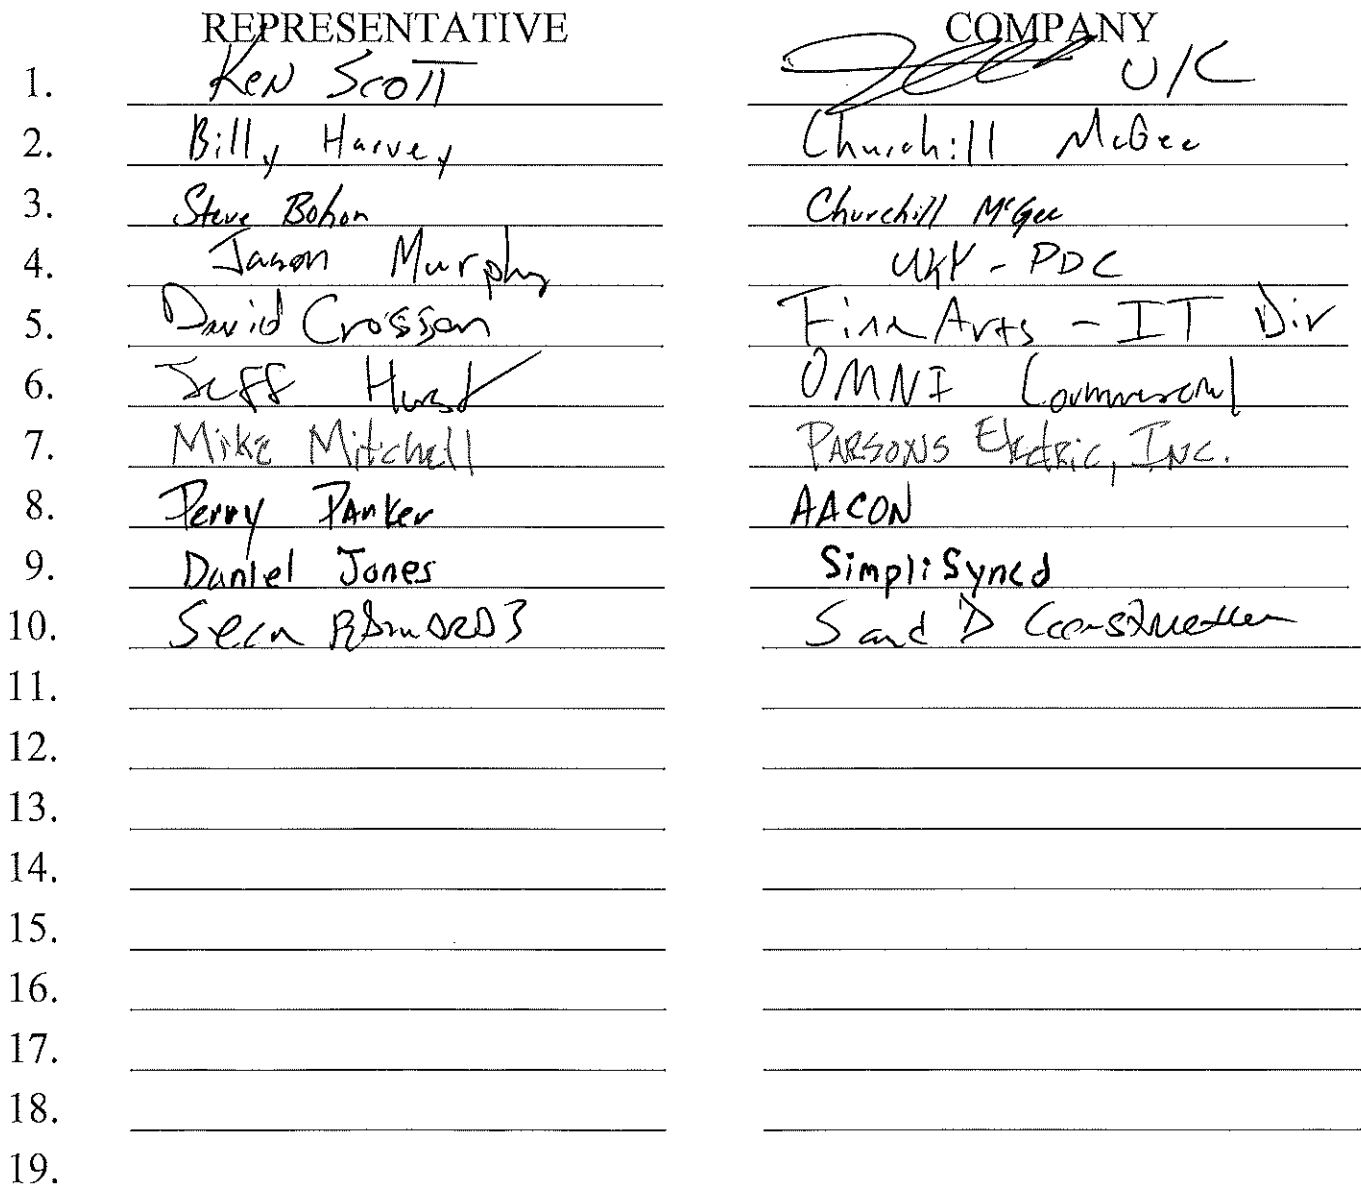 REPRESENTATIVE COMPANY
1. Ken Scott U/C
2. Billy Harvey Churchill McGee
3. Steve Bohon Churchill McGee
4. Jason Murphy UKY - PDC
5. David Crossen Fine Arts - IT Div
6. Jeff Hurst OMNI Commercial
7. Mike Mitchell PARSONS Electric, INC.
8. Perry Parker AACON
9. Daniel Jones SimpliSyncd
10. Sean S and D Construction
11.
12.
13.
14.
15.
16.
17.
18.
19.